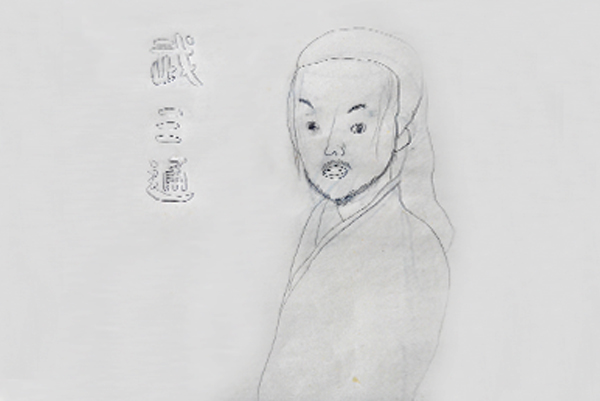 武三通